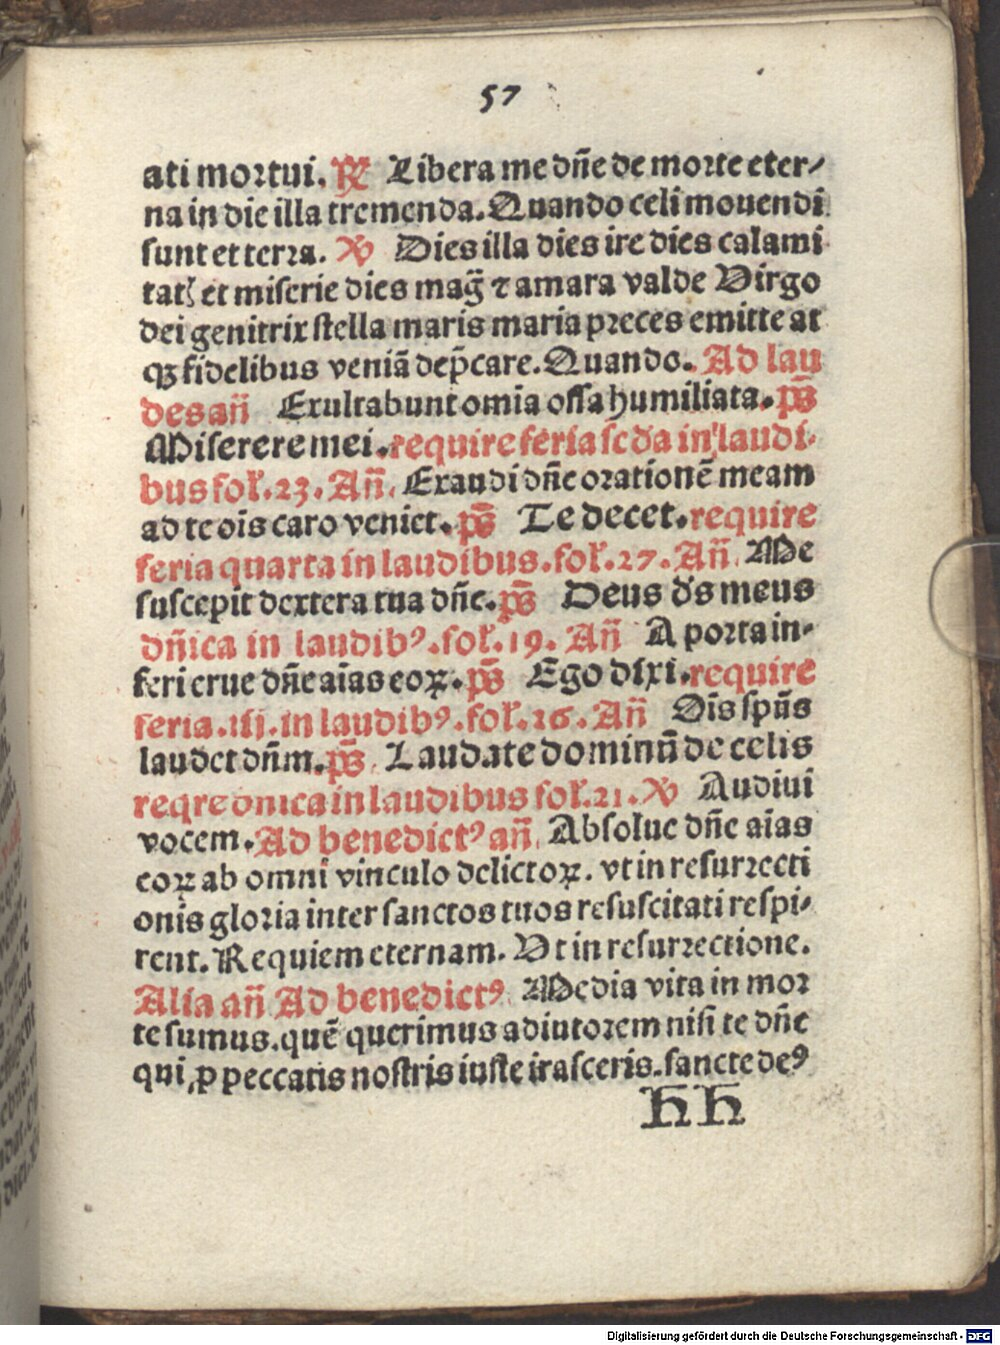 57
ati mortui. ℟ Libera me dn̄e de morte eter⸗
na in die illa tremenda. Quando celi mouendi
sunt et terra. ℣ Dies illa dies ire dies calami
tatꝭ et miserie dies mag̃ ⁊ amara valde Virgo
dei genitrix stella maris maria preces emitte at
qꝫ fidelibus veniā dep̄care. Quando. Ad lau
des an̄ Exultabunt omia ossa humiliata. ps̄
Miserere mei. require feria scda in laudi⸗
bus foł. 23. An̄. Exaudi dn̄e orationē meam
ad te ois̄ caro veniet. ps̄ Te decet. require
feria quarta in laudibus. foł. 27. An̄. Me
suscepit dextera tua dn̄e. ps̄ Deus ds̄ meus
dn̄ica in laudibꝰ. foł. 19. An̄ A porta in⸗
feri erue dn̄e aīas eoꝝ. ps̄ Ego dixi. require
feria. iij. in laudibꝰ. foł. 26. An̄ Ois̄ spūs
laudet dn̄m. ps̄ Laudate dominū de celis
reqre dnica in laudibus foł. 21. ℣ Audiui
vocem. Ad benedictꝰ an̄. Absolue dn̄e aīas
eoꝝ ab omni vinculo delictoꝝ. vt in resurrecti
onis gloria inter sanctos tuos resuscitati respi⸗
rent. Requiem eternam. Vt in resurrectione.
Alia an̄ Ad benedictꝰ Media vita in mor
te sumus. quē querimus adiutorem nisi te dn̄e
qui ꝓ peccatis nostris iuste irasceris. sancte deꝰ
hh
Digitalisierung gefördert durch die Deutsche Forschungsgemeinschaft - DFG